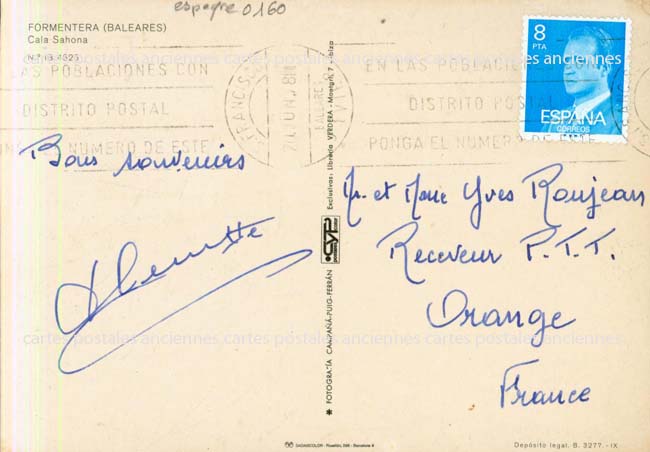 espagne 0160
FORMENTERA (BALEARES)
Cala Sahona
8
PTA
ESPAÑA
CORREOS
LAS POBLACIONES CON
DISTRITO POSTAL
NUMERO DE ESTE
EN LAS POBLACIONES
DISTRITO POSTAL
PONGA EL NUMERO DE ESTE
FRANCISCO
JUN
BALEARES
Bons souvenirs
Mr. et Mme Yves Roujean
Receveur P.T.T.
Orange
France
Exclusivas: Librería VERDERA - 7 - Ibiza
CYP
* FOTOGRAFÍA CAMPAÑÁ-PUIG-FERRÁN
cartes postales anciennes cartes postales anciennes cartes postales anciennes
cartes postales anciennes cartes postales anciennes cartes postales anciennes
Depósito legal. B. 3277.-IX